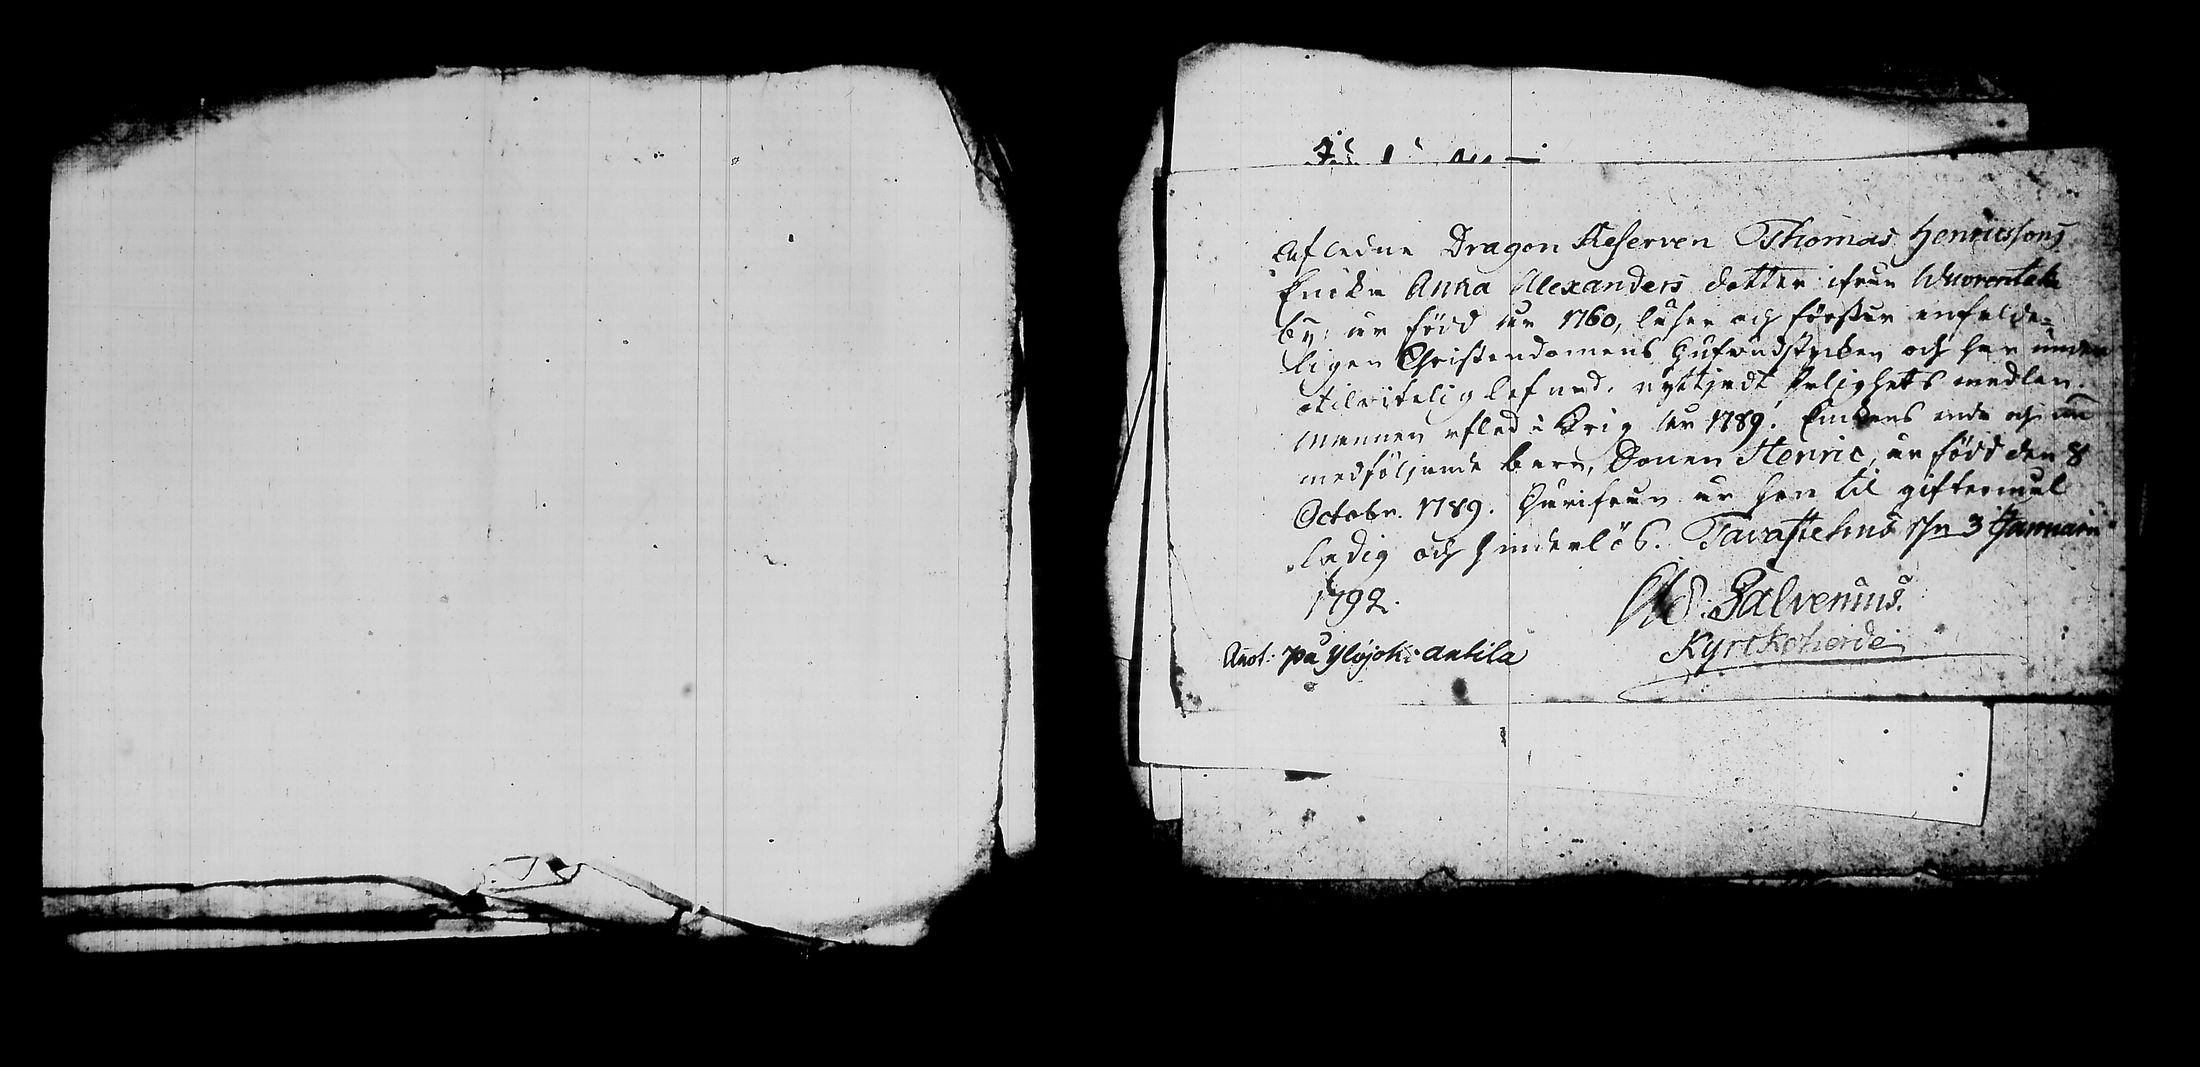 Afledne Dragon Reserven Thomas Henricssons
Encka Anna Alexanders dotter ifrån Wuorentaka
by, är född år 1760, läser och förstår enfalde-
ligen Christendomens hufvudstycken och har under
otilvitelig lefnad, nyttjadt Salighets medlen.
Mannen afled i Krig år 1789. Enckans enda och nu
medföljande barn, Sonen Henric, är född den 8
Octobr. 1789. Härifrån är hon til giftermål
ledig och hinderlös. Tavastehus d. 3 Januarii
1792.
Salvenius.
Kyrckoherde
Anot: på Ylöjoki Antila